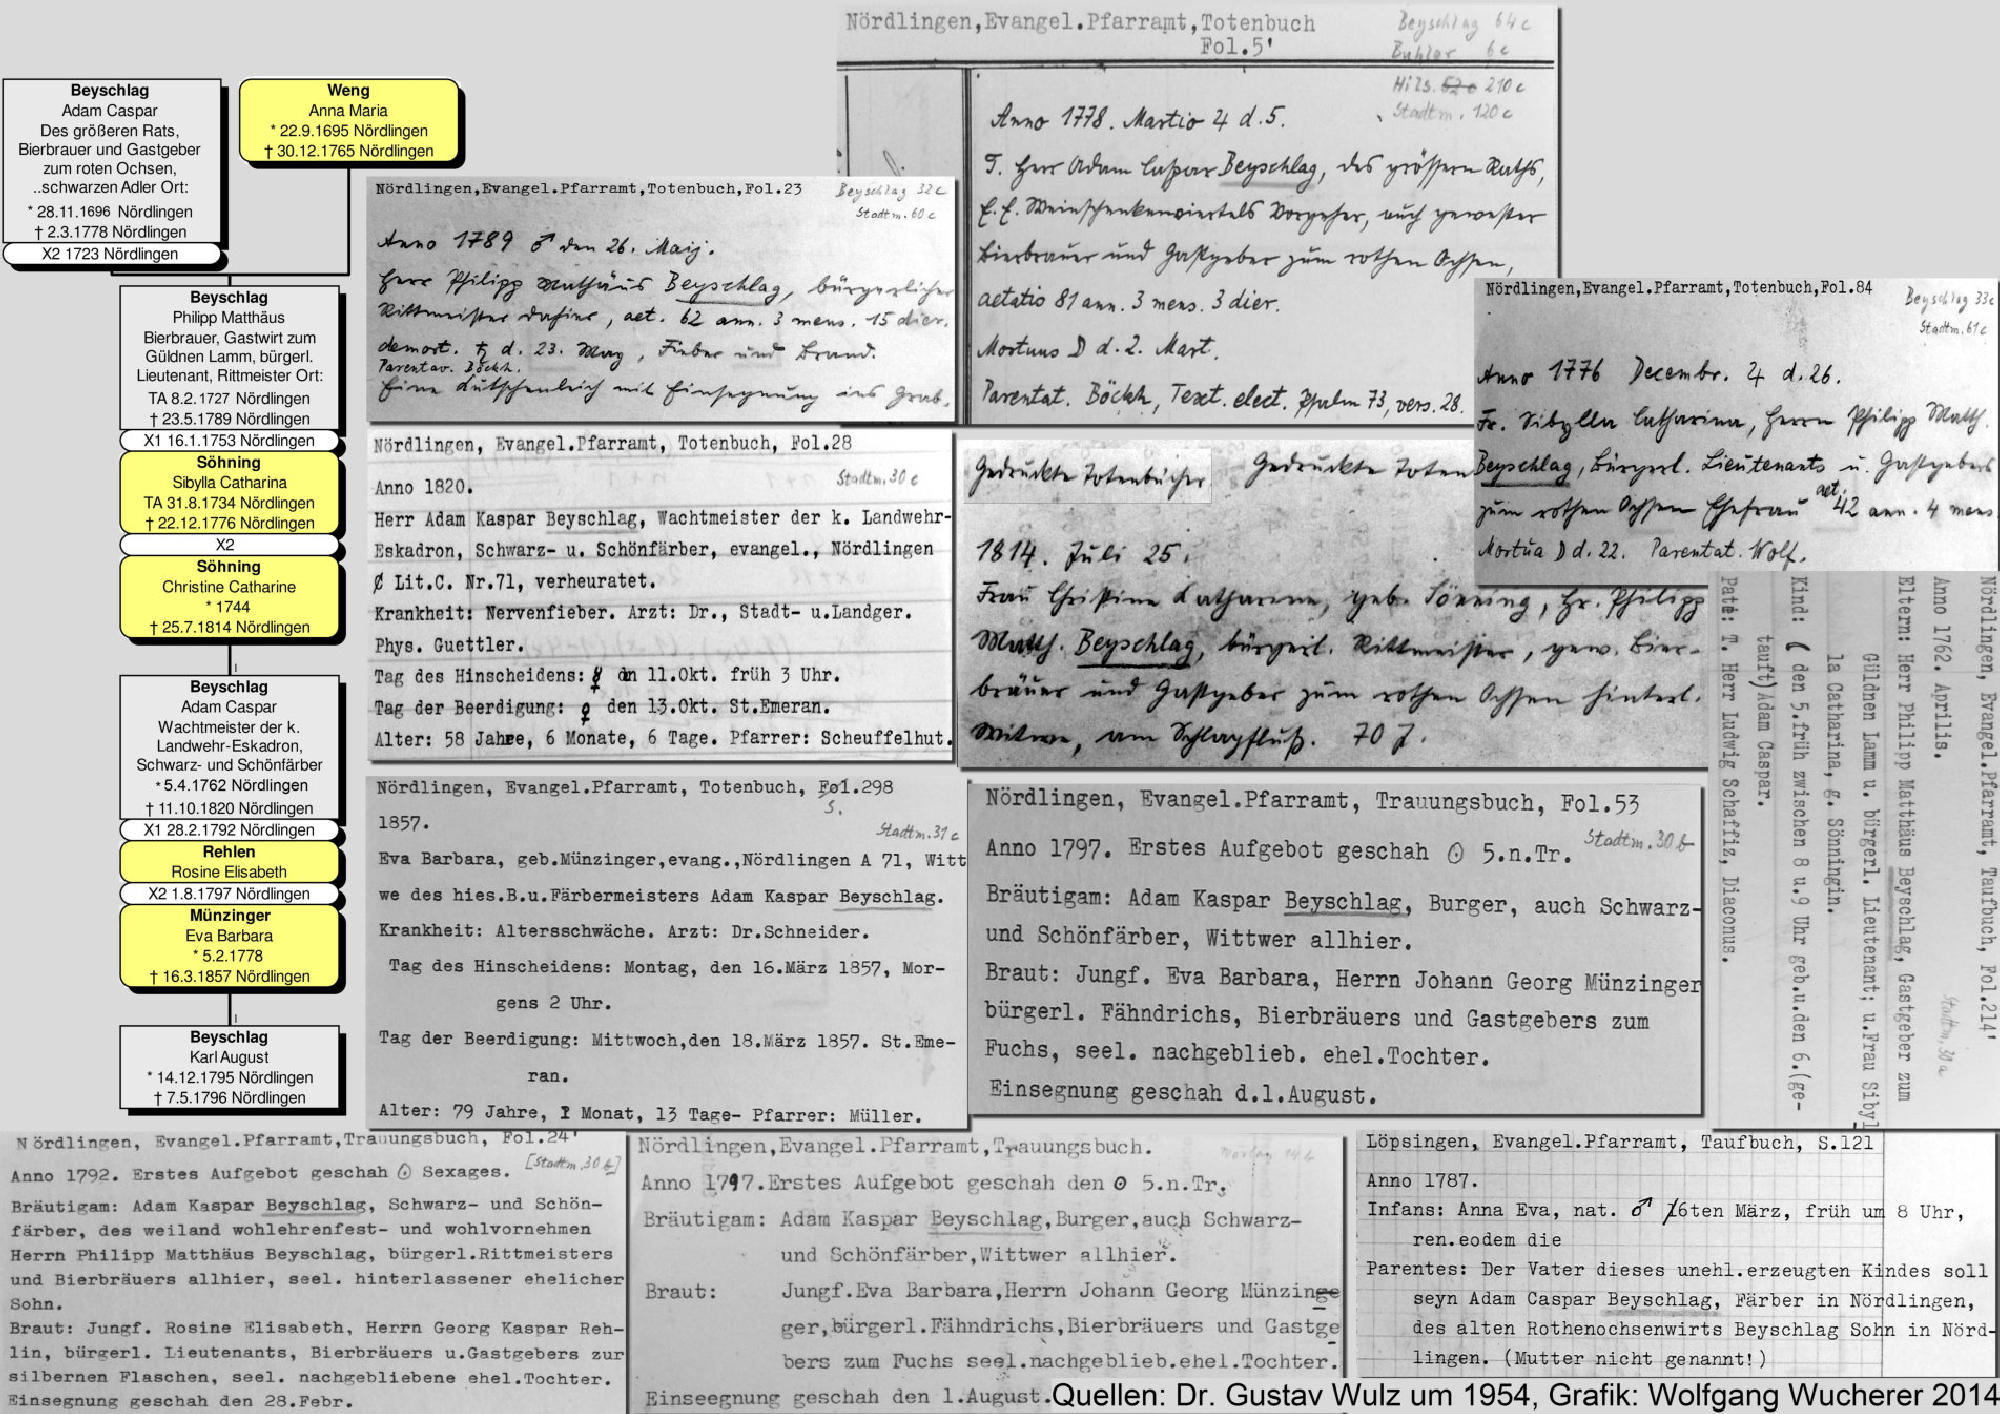 Beyschlag
Adam Caspar
Des größeren Rats,
Bierbrauer und Gastgeber
zum roten Ochsen,
..schwarzen Adler Ort:
* 28.11.1696 Nördlingen
† 2.3.1778 Nördlingen
X2 1723 Nördlingen
Weng
Anna Maria
* 22.9.1695 Nördlingen
† 30.12.1765 Nördlingen
Beyschlag
Philipp Matthäus
Bierbrauer, Gastwirt zum
Güldnen Lamm, bürgerl.
Lieutenant, Rittmeister Ort:
TA 8.2.1727 Nördlingen
† 23.5.1789 Nördlingen
X1 16.1.1753 Nördlingen
Söhning
Sibylla Catharina
TA 31.8.1734 Nördlingen
† 22.12.1776 Nördlingen
X2
Söhning
Christine Catharine
* 1744
† 25.7.1814 Nördlingen
Beyschlag
Adam Caspar
Wachtmeister der k.
Landwehr-Eskadron,
Schwarz- und Schönfärber
* 5.4.1762 Nördlingen
† 11.10.1820 Nördlingen
X1 28.2.1792 Nördlingen
Rehlen
Rosine Elisabeth
X2 1.8.1797 Nördlingen
Münzinger
Eva Barbara
* 5.2.1778
† 16.3.1857 Nördlingen
Beyschlag
Karl August
* 14.12.1795 Nördlingen
† 7.5.1796 Nördlingen
Nördlingen,Evangel.Pfarramt,Totenbuch
Fol.5'
Beyschlag 64c
Buhler 6c
Hils. 62c 210c
Stadtm. 120c
Anno 1778. Martio 4 d.5.
T. Herr Adam Caspar Beyschlag, des grössern Raths,
E.E. Weinschenkenviertels Vorgeher, auch gewester
Bierbrauer und Gastgeber zum rothen Ochsen,
aetatis 81 ann. 3 mens. 3 dier.
Mortuus d. 2. Mart.
Parentat. Böckh, Text. elect. Psalm 73, vers. 28.
Nördlingen,Evangel.Pfarramt,Totenbuch,Fol.23
Beyschlag 32c
Stadtm. 60c
Anno 1789 ♂ den 26. Maij.
Herr Philipp Mathäus Beyschlag, bürgerlicher
Rittmeister dahier, aet. 62 ann. 3 mens. 15 dier.
demort. ♄ d. 23. May, Fieber und Brand.
Parentav. Böckh.
Eine Kutschenleich mit Einsegnung ins Grab.
Nördlingen,Evangel.Pfarramt,Totenbuch,Fol.84
Beyschlag 33c
Stadtm. 61c
Anno 1776 Decembr. 4 d.26.
Fr. Sibylla Catharina, Herrn Philipp Matth.
Beyschlag, bürgerl. Lieutenants u. Gastgebers
zum rothen Ochsen Ehefrau aet. 42 ann. 4 mens.
Mortua d. 22. Parentat. Wolf.
Nördlingen, Evangel.Pfarramt, Totenbuch, Fol.28
Stadtm. 30c
Anno 1820.
Herr Adam Kaspar Beyschlag, Wachtmeister der k. Landwehr-
Eskadron, Schwarz- u. Schönfärber, evangel., Nördlingen
Lit.C. Nr.71, verheuratet.
Krankheit: Nervenfieber. Arzt: Dr., Stadt- u.Landger.
Phys. Guettler.
Tag des Hinscheidens: ☿ dn 11.Okt. früh 3 Uhr.
Tag der Beerdigung: ♀ den 13.Okt. St.Emeran.
Alter: 58 Jahre, 6 Monate, 6 Tage. Pfarrer: Scheuffelhut.
Gedruckte Totenbücher
Gedruckte Toten
1814. Juli 25.
Frau Christine Katharine, geb. Sönning, Hr. Philipp
Matth. Beyschlag, bürgerl. Rittmeister, gew. Bier-
bräuer und Gastgeber zum rothen Ochsen hinterl.
Witwe, am Schlagfluß. 70 J.
Nördlingen, Evangel.Pfarramt, Taufbuch, Fol.214'
Stadtm. 30a
Anno 1762. Aprilis.
Eltern: Herr Philipp Matthäus Beyschlag, Gastgeber zum
Güldnen Lamm u. bürgerl. Lieutenant; u.Frau Sibyl
la Catharina, g. Sönningin.
Kind: ☾ den 5.früh zwischen 8 u.9 Uhr geb.u.den 6.(ge-
tauft)Adam Caspar.
Pate: T. Herr Ludwig Schaffiz, Diaconus.
Nördlingen, Evangel.Pfarramt, Totenbuch, Fol.298
S.
Stadtm. 31c
1857.
Eva Barbara, geb.Münzinger,evang.,Nördlingen A 71, Witt
we des hies.B.u.Färbermeisters Adam Kaspar Beyschlag.
Krankheit: Altersschwäche. Arzt: Dr.Schneider.
Tag des Hinscheidens: Montag, den 16.März 1857, Mor-
gens 2 Uhr.
Tag der Beerdigung: Mittwoch,den 18.März 1857. St.Eme-
ran.
Alter: 79 Jahre, 1 Monat, 13 Tage- Pfarrer: Müller.
Nördlingen, Evangel.Pfarramt, Trauungsbuch, Fol.53
Stadtm. 30b
Anno 1797. Erstes Aufgebot geschah ☉ 5.n.Tr.
Bräutigam: Adam Kaspar Beyschlag, Burger, auch Schwarz-
und Schönfärber, Wittwer allhier.
Braut: Jungf. Eva Barbara, Herrn Johann Georg Münzinger
bürgerl. Fähndrichs, Bierbräuers und Gastgebers zum
Fuchs, seel. nachgeblieb. ehel.Tochter.
Einsegnung geschah d.1.August.
Nördlingen, Evangel.Pfarramt,Trauungsbuch, Fol.24'
[Stadtm. 30b]
Anno 1792. Erstes Aufgebot geschah ☉ Sexages.
Bräutigam: Adam Kaspar Beyschlag, Schwarz- und Schön-
färber, des weiland wohlehrenfest- und wohlvornehmen
Herrn Philipp Matthäus Beyschlag, bürgerl.Rittmeisters
und Bierbräuers allhier, seel. hinterlassener ehelicher
Sohn.
Braut: Jungf. Rosine Elisabeth, Herrn Georg Kaspar Reh-
lin, bürgerl. Lieutenants, Bierbräuers u.Gastgebers zur
silbernen Flaschen, seel. nachgebliebene ehel.Tochter.
Einsegnung geschah den 28.Febr.
Nördlingen,Evangel.Pfarramt,Trauungsbuch.
Anno 1797.Erstes Aufgebot geschah den ☉ 5.n.Tr.
Bräutigam: Adam Kaspar Beyschlag,Burger,auch Schwarz-
und Schönfärber,Wittwer allhier.
Braut: Jungf.Eva Barbara,Herrn Johann Georg Münzinge
ger,bürgerl.Fähndrichs,Bierbräuers und Gastge
bers zum Fuchs seel.nachgeblieb.ehel.Tochter.
Einseegnung geschah den 1.August.
Löpsingen, Evangel.Pfarramt, Taufbuch, S.121
Anno 1787.
Infans: Anna Eva, nat. ♂ 16ten März, früh um 8 Uhr,
ren.eodem die
Parentes: Der Vater dieses unehl.erzeugten Kindes soll
seyn Adam Caspar Beyschlag, Färber in Nördlingen,
des alten Rothenochsenwirts Beyschlag Sohn in Nörd-
lingen. (Mutter nicht genannt!)
Quellen: Dr. Gustav Wulz um 1954, Grafik: Wolfgang Wucherer 2014